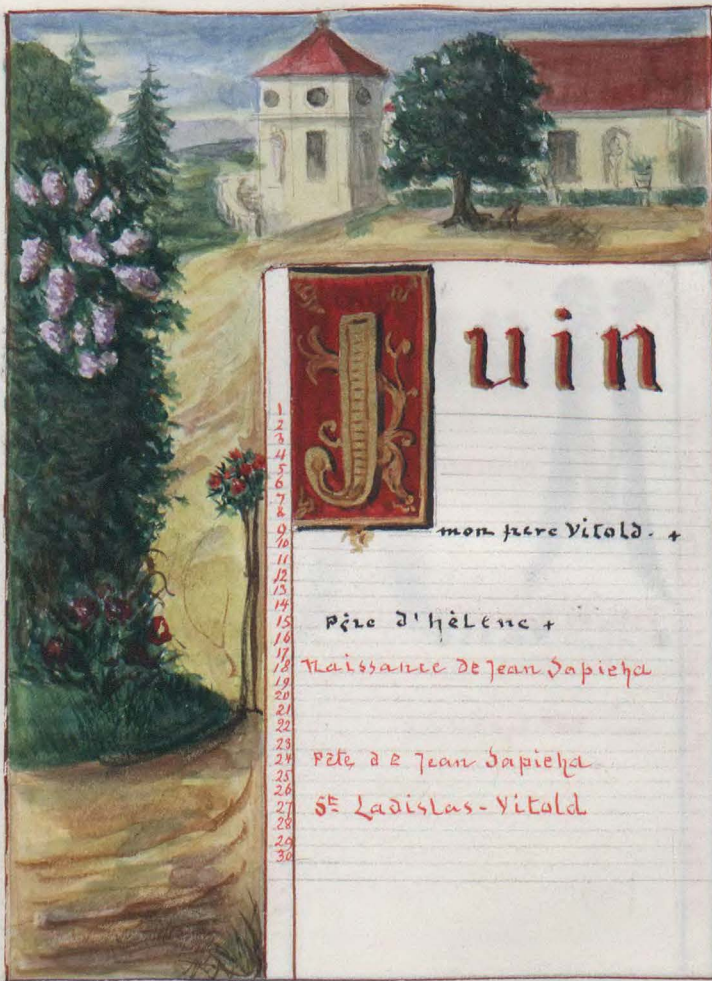 Juin
1
2
3
4
5
6
7
8
9 mon père Vitold. +
10
11
12
13
14
15 Père d'hélène +
16
17
18 Naissance de Jean Sapieha
19
20
21
22
23
24 Fête de Jean Sapieha
25
26
27 St Ladislas-Vitold
28
29
30